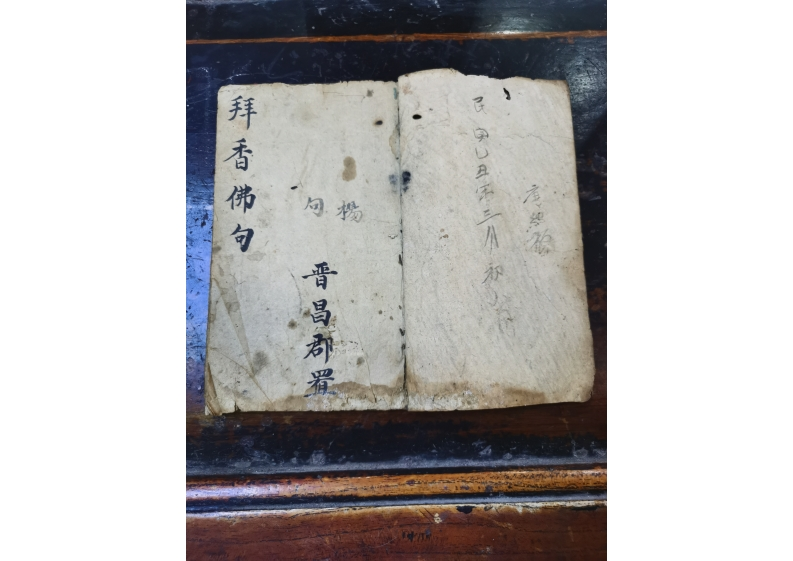 拜香佛句
句
楊
晋昌郡置
民國乙丑年三月初